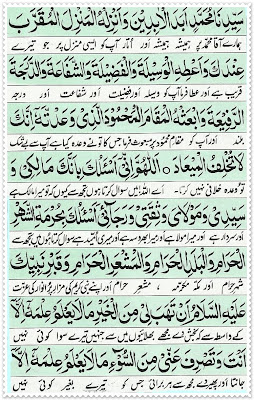 سَيِّدِنَا مُحَمَّدٍ اَبَدَ الْاَبِدِيْنَ وَاَنْزِلْهُ الْمَنْزِلَ الْمُقَرَّبَ
ہمارے آقا محمد پر ہمیشہ ہمیشہ اور اتار آپ کو ایسی منزل پر جو تیرے
عِنْدَكَ وَاَعْطِهِ الْوَسِيْلَةَ وَالْفَضِيْلَةَ وَالشَّفَاعَةَ وَالدَّرَجَةَ
قریب ہے اور عطا فرما آپ کو وسیلہ اور فضیلت اور شفاعت اور درجہ
الرَّفِيْعَةَ وَابْعَثْهُ الْمَقَامَ الْمَحْمُوْدَ الَّذِيْ وَعَدْتَّهٗ اِنَّكَ
بلند اور آپ کو مقام محمود پر مبعوث فرما جس کا تو نے وعدہ کیا ہے آپ سے بیشک
لَا تُخْلِفُ الْمِيْعَادَ ۝ اَللّٰهُمَّ اِنِّيْ اَسْئَلُكَ بِاَنَّكَ مَالِكِيْ وَ
تو وعدہ خلافی نہیں کرتا۔ اے اللہ میں سوال کرتا ہوں تجھ سے کیوں کہ تو میرا مالک ہے
سَيِّدِيْ وَمَوْلَايَ وَثِقَتِيْ وَرَجَائِيْ اَسْئَلُكَ بِحُرْمَةِ الشَّهْرِ
اور سردار ہے اور میرا مولا ہے اور میرا بھروسہ ہے اور میری امید ہے سوال کرتا ہوں میں تجھ سے
الْحَرَامِ وَالْبَلَدِ الْحَرَامِ وَالْمَشْعَرِ الْحَرَامِ وَقَبْرِ نَبِيِّكَ
شہر حرام اور مکہ مکرمہ، مشعر حرام اور اپنے نبی کریم کی مزار پر انوار کی عزت
عَلَيْهِ السَّلَامُ اَنْ تَهَبَ لِيْ مِنَ الْخَيْرِ مَا لَا يَعْلَمُ عِلْمَهٗ اِلَّا
کے واسطہ سے کہ بخش دے مجھے بھلائیوں میں سے جنہیں تیرے سوا کوئی نہیں
اَنْتَ وَتَصْرِفَ عَنِّيْ مِنَ السُّوْءِ مَا لَا يَعْلَمُ عِلْمَهٗ اِلَّا
جانتا اور پھیر دے مجھ سے ہر برائی جس کو تیرے بغیر کوئی نہیں